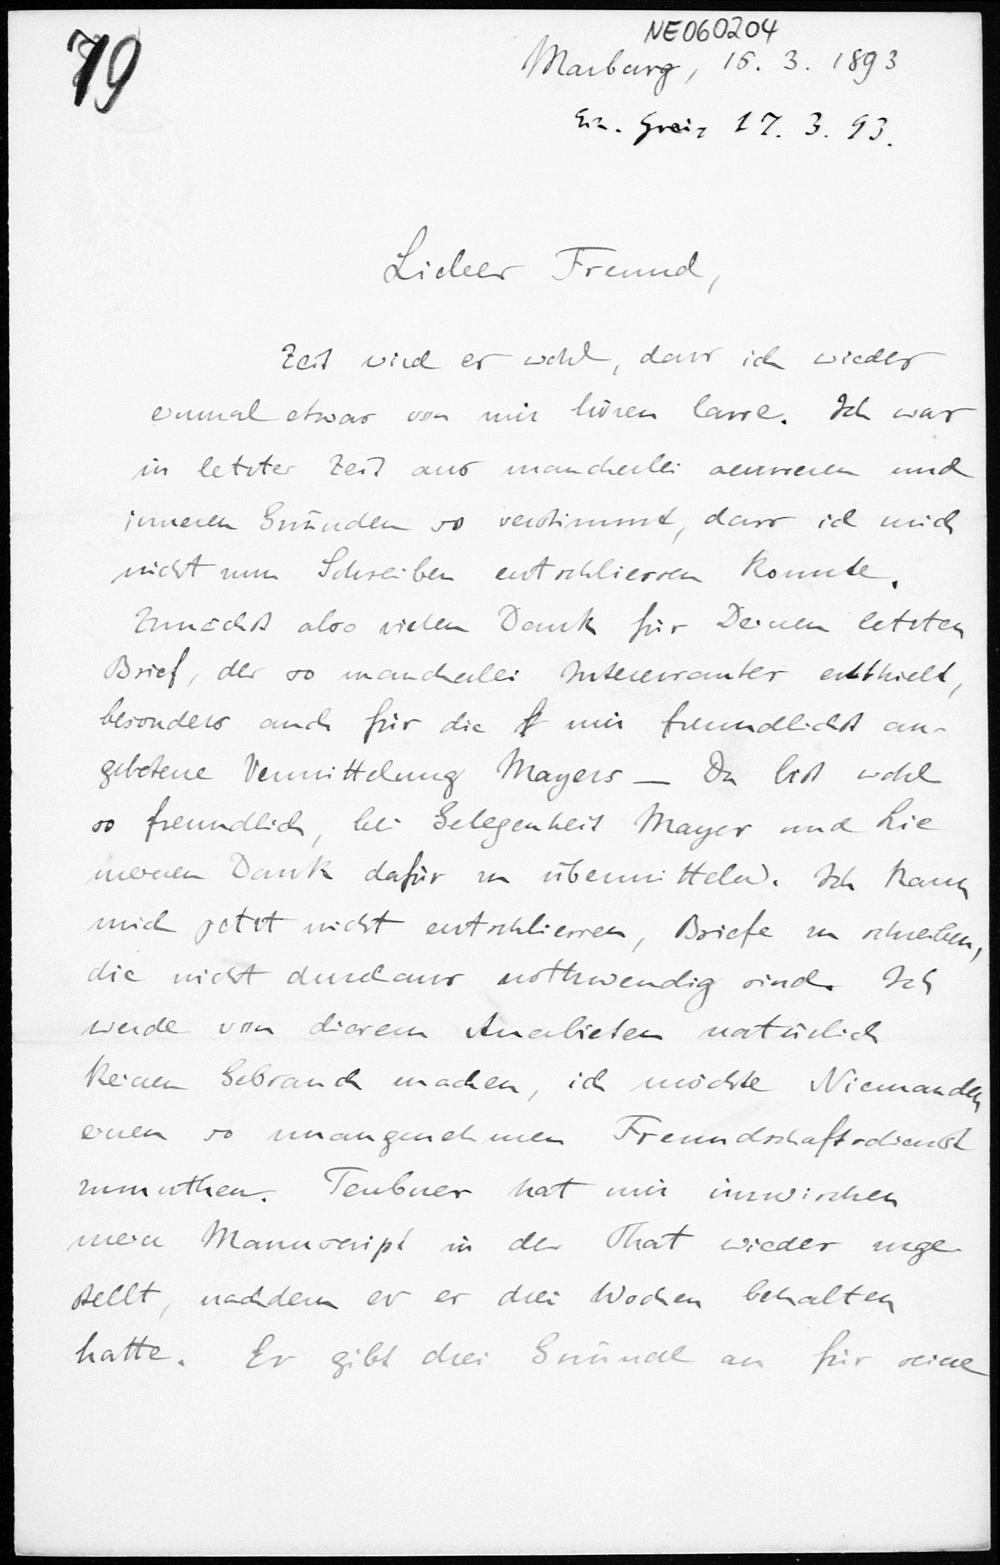 79
NE060204
Marburg, 16. 3. 1893
Greiz 17. 3. 93.
Lieber Freund,
Zeit wird es wohl, dass ich wieder
einmal etwas von mir hören lasse. Ich war
in letzter Zeit aus mancherlei aeusseren und
inneren Gründen so verstimmt, dass ich mich
nicht zum Schreiben entschliessen konnte.
Zunächst also vielen Dank für Deinen letzten
Brief, der so mancherlei Interessantes enthielt,
besonders auch für die mir freundlichst an-
gebotene Vermittelung Mayers — Du bist wohl
so freundlich, bei Gelegenheit Mayer und Lie
meinen Dank dafür zu übermitteln. Ich kann
mich jetzt nicht entschliessen, Briefe zu schreiben,
die nicht durchaus nothwendig sind. Ich
werde von diesem Anerbieten natürlich
keinen Gebrauch machen, ich möchte Niemanden
einen so unangenehmen Freundschaftsdienst
zumuthen. Teubner hat mir inzwischen
mein Manuscript in der That wieder zuge-
stellt, nachdem er es drei Wochen behalten
hatte. Er gibt drei Gründe an für seine